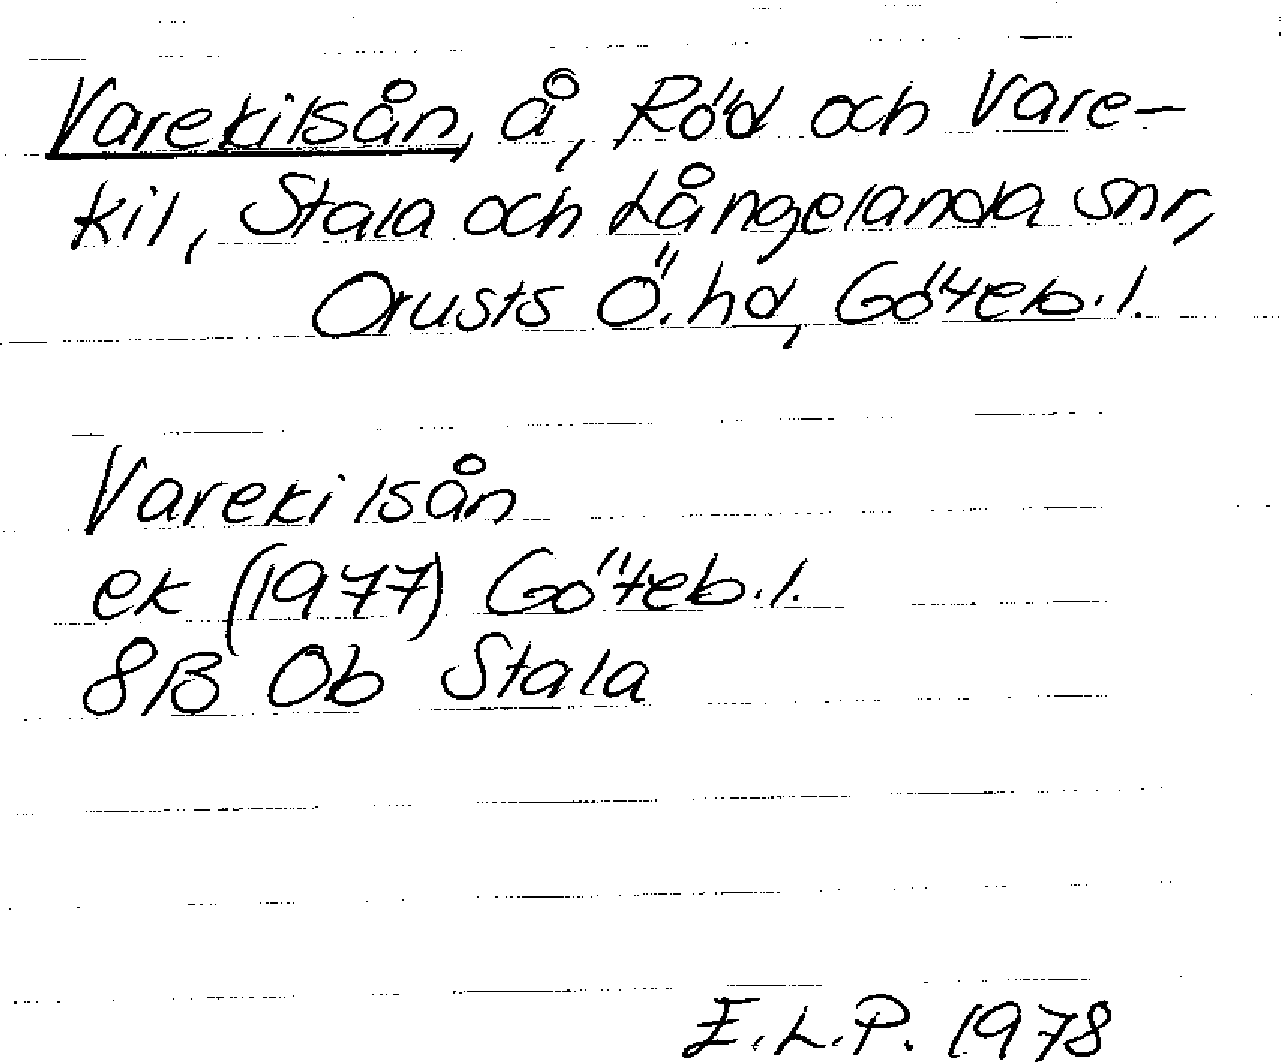 Varekilsån, å, Röd och Vare-
kil, Stala och Långelanda snr,
Orusts Ö. hd, Göteb. l.
Varekilsån
ek (1977) Göteb. l.
8B 0b Stala
E.L.P. 1978